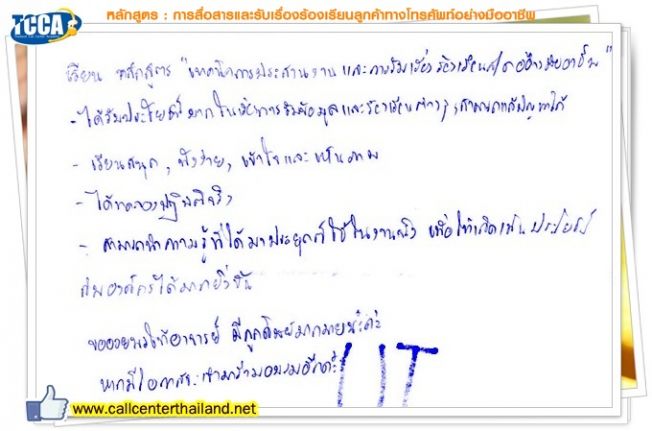 TCCA
หลักสูตร : การสื่อสารและรับเรื่องร้องเรียนลูกค้าทางโทรศัพท์อย่างมืออาชีพ
เรียน หลักสูตร "เทคนิคการประสานงานและการรับเรื่องร้องเรียน อย่างมืออาชีพ"
- ได้รับประโยชน์มากในเรื่องการรับข้อมูลและร้องเรียนต่างๆ
- เรียนสนุก, ฟังง่าย, เข้าใจและเห็นภาพ
- ได้ทดลองปฏิบัติจริง
- สามารถนำความรู้ที่ได้มาประยุกต์ใช้ในงานจริง เพื่อให้เกิดเป็นประโยชน์
กับองค์กรได้มากยิ่งขึ้น
ขออวยพรให้อาจารย์ มีลูกศิษย์มากมายนะคะ
หากมีโอกาสจะเข้ามาร่วมอบรมอีกค่ะ
UT
www.callcenterthailand.net